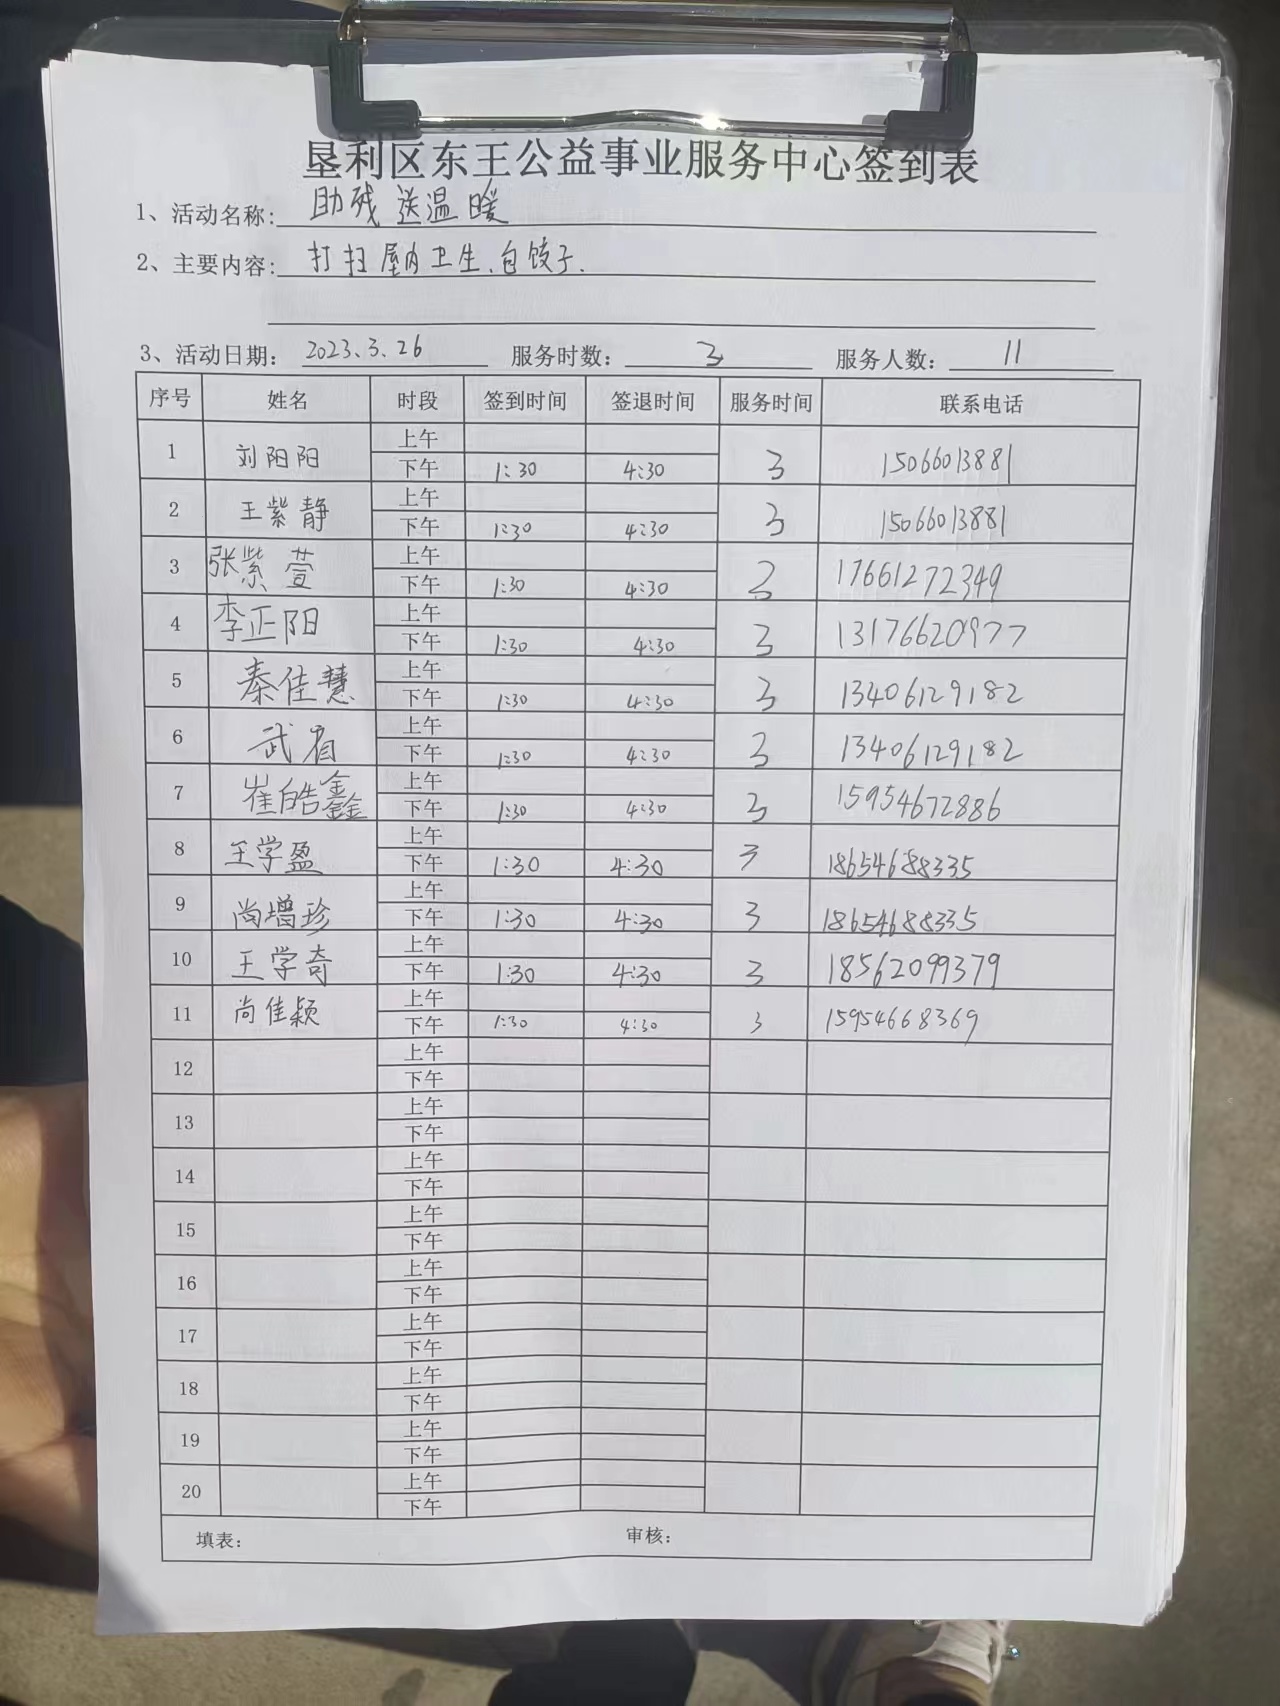 垦利区东王公益事业服务中心签到表
1、活动名称: 助残送温暖
2、主要内容: 打扫屋内卫生、包饺子.
3、活动日期: 2023.3.26 服务时数: 3 服务人数: 11
序号 姓名 时段 签到时间 签退时间 服务时间 联系电话
1 刘阳阳 上午
下午 1:30 4:30 3 15066013881
2 王紫静 上午
下午 1:30 4:30 3 15066013881
3 张紫萱 上午
下午 1:30 4:30 3 17661272349
4 李正阳 上午
下午 1:30 4:30 3 13176620977
5 秦佳慧 上午
下午 1:30 4:30 3 13406129182
6 武眉 上午
下午 1:30 4:30 3 13406129182
7 崔皓鑫 上午
下午 1:30 4:30 3 15954672886
8 王学盈 上午
下午 1:30 4:30 3 18654688335
9 尚增珍 上午
下午 1:30 4:30 3 18654688335
10 王学奇 上午
下午 1:30 4:30 3 18562099379
11 尚佳颖 上午
下午 1:30 4:30 3 15954668369
12 上午
下午
13 上午
下午
14 上午
下午
15 上午
下午
16 上午
下午
17 上午
下午
18 上午
下午
19 上午
下午
20 上午
下午
填表: 审核: